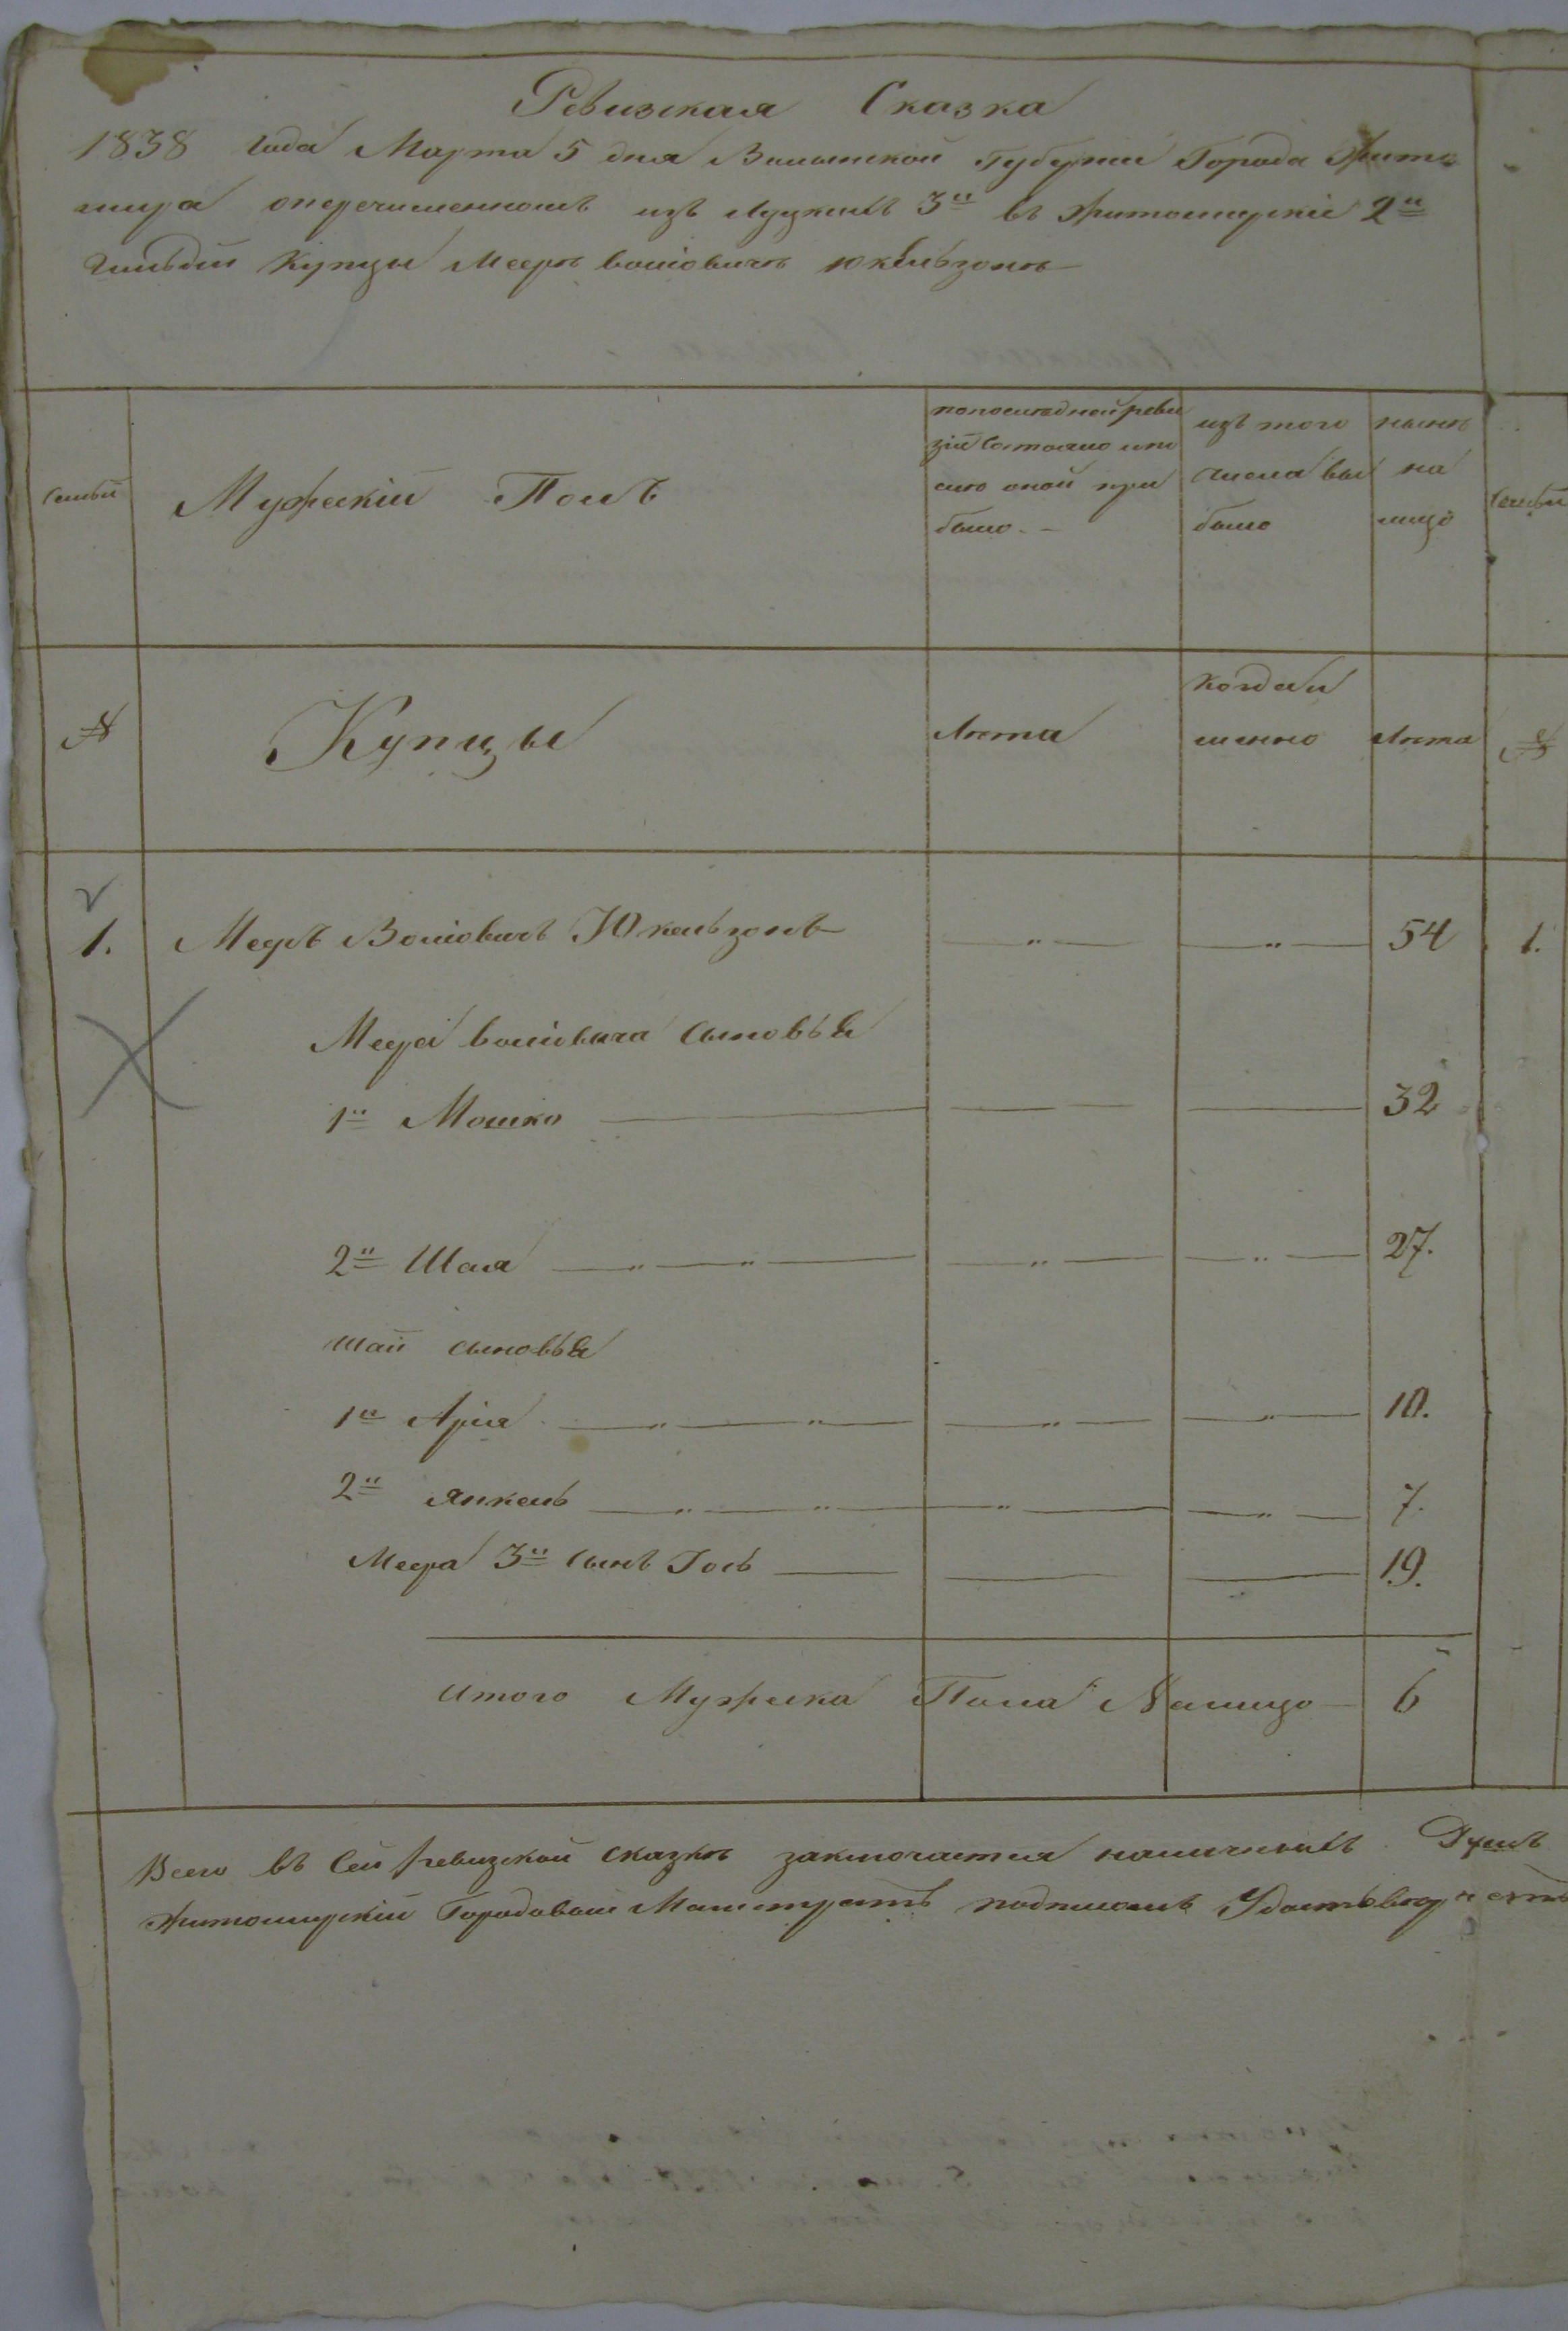 Ревизская Сказка
1838 Года Марта 5 дня Волынской Губернии Города Жито
мира оперечисленномъ изъ луцкихъ 3й въ Житомирскіе 2й
Гильдіи Купцы Мееръ Волiовичъ Юкельзонъ
Семьи
Мужескій Полъ
по последней реви
зіи Состояло или
после оной при
было. -
изъ того
числа вы
было
нынѣ
на
лицо
Семьи
№
Купцы
Лѣта
когда и
менно
Лѣта
№
1. Меэръ Волiовичъ Юкельзонъ — " — — " — 54 1.
Меера Волiовича Сыновья
1й Мошко 32
2й Шая — " — " — — " — — " — 27.
Шаи сыновья
1й Арія — " — " — — " — — " — 10.
2й Янкель — " — " — " — — " — 7.
Меера 3й Сынъ Іось 19.
Итого Мужеска Пола Налицо 6
Всего въ Сей ревизской сказкѣ заключается наличныхъ Душъ
Житомирскій Городовой Магистратъ подписомъ